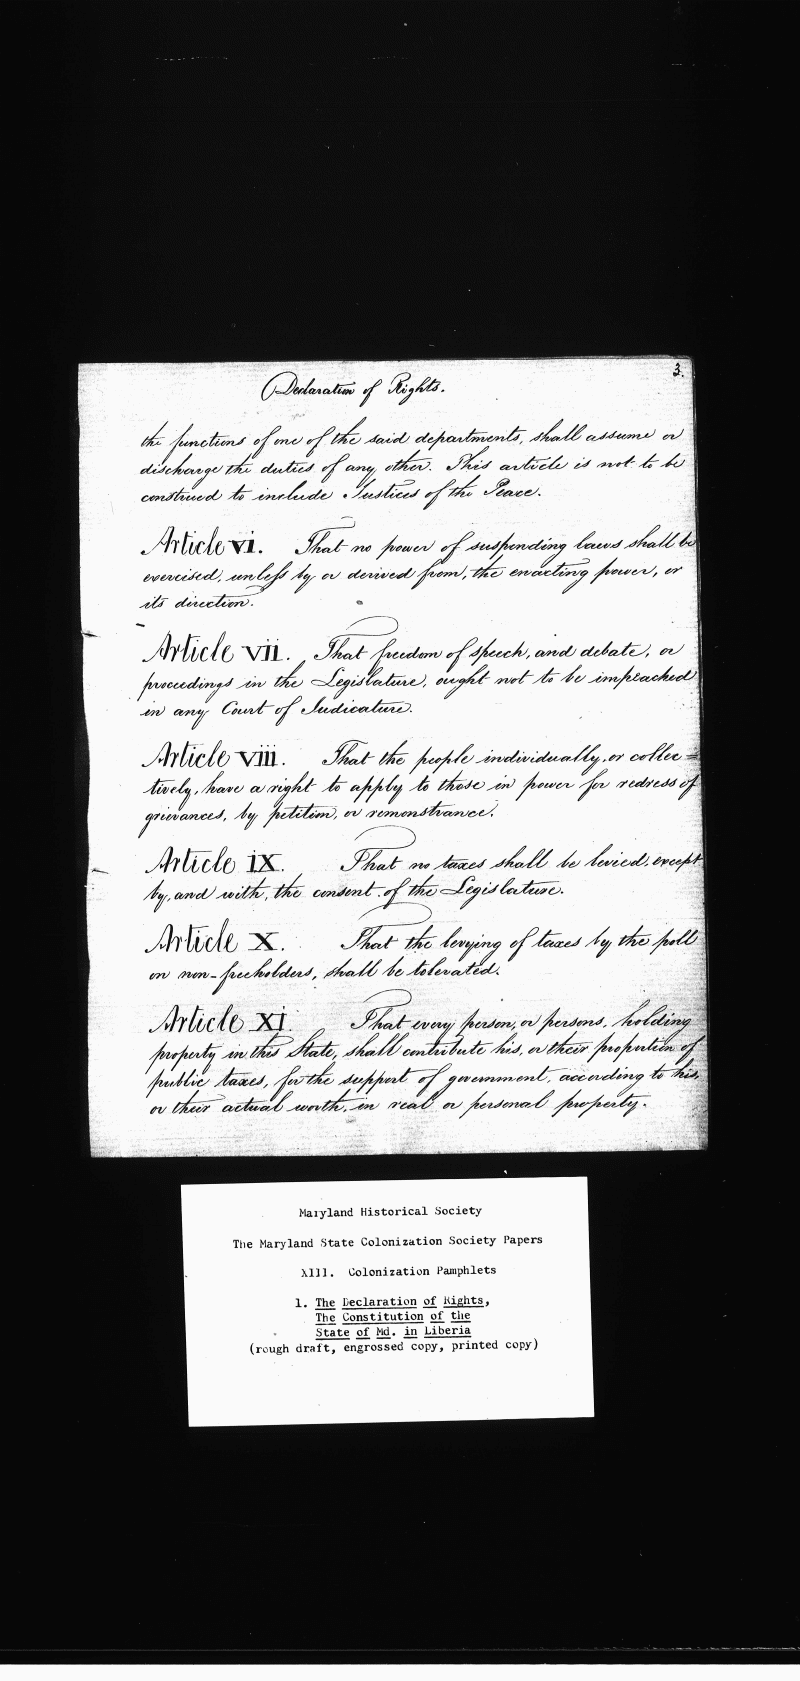 3.
Declaration of Rights.
the functions of one of the said departments, shall assume or
discharge the duties of any other. This article is not to be
construed to include Justices of the Peace.
Article vi. That no power of suspending laws shall be
exercised, unless by or derived from, the enacting power, or
its direction.
Article vii. That freedom of speech, and debate, or
proceedings in the Legislature, ought not to be impeached
in any Court of Judicature.
Article viii. That the people individually, or collec=
tively, have a right to apply to those in power for redress of
grievances, by petition, or remonstrance.
Article ix. That no taxes shall be levied, except
by, and with, the consent of the Legislature.
Article x. That the levying of taxes by the poll
on non-freeholders, shall be tolerated.
Article xi. That every person, or persons, holding
property in this State, shall contribute his, or their proportion of
public taxes, for the support of government, according to his,
or their actual worth, in real or personal property.
Maryland Historical Society
The Maryland State Colonization Society Papers
XIII. Colonization Pamphlets
1. The Declaration of Rights,
The Constitution of the
State of Md. in Liberia
(rough draft, engrossed copy, printed copy)